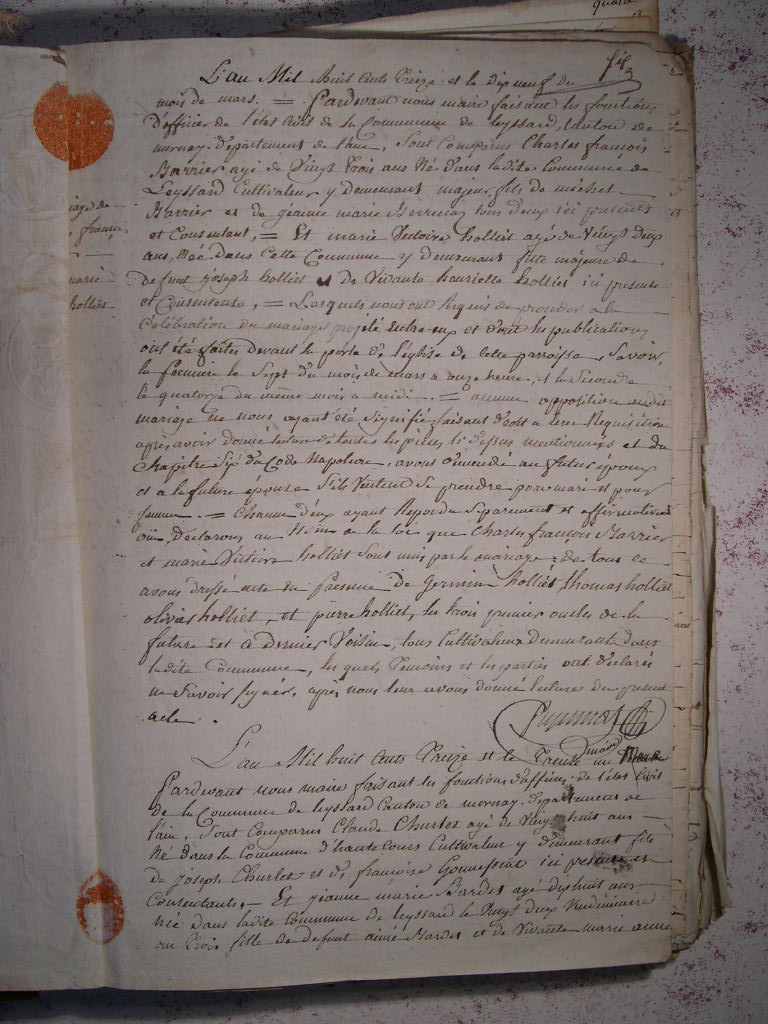 L'an Mil huit cents treize et le dix neuf du
mois de mars. = Pardevant nous maire faisant les fonctions
d'officier de l'état civil de la Commune de leyssard, Canton de
mornay département de l'ain, sont comparus Charles françois
Barrier agé de vingt trois ans né dans ladite Commune de
Leyssard Cultivateur y demeurant majeur, fils de michel
Barrier et de jeanne marie tous deux ici présents
et Consentant, = Et marie victoire holliet agé de vingt deux
ans, née dans cette Commune y demeurant fille majeure de
defunt joseph holliet et de vivante henriette holliet ici presente
et Consentente, = Lesquels nous ont requis de proceder a la
Célébration du mariage projeté entre eux et dont les publications
ont été faites devant la porte de l'église de cette parroisse, savoir,
la premiere le sept du mois de mars a onze heure, et la seconde
le quatorze du même mois a midi. = aucune opposition audit
mariage ne nous ayant été signifié faisant droit a leur requisition
après avoir donné lecture de toutes les pièces ci dessus mentionnées et du
chapitre six du Code Napoleon, avons demandé au futur époux
et a la future épouse s'ils veulent se prendre pour mari et pour
femme. = Chacun d'eux ayant repondu séparement et affirmativement
oui, Déclarons au Nom de la loi que Charles francois Barrier
et marie victoire holliet sont unis par le mariage : de tous ce
avons dressé acte en presence de germain holliet thomas holliet
olivas holliet, et pierre holliet, les trois premier oncles de la
future et a dernier voisin, tous Cultivateurs demeurants dans
ladite Commune, les quels temoins et les parties ont déclarés
ne savoir signer, après nous leur avons donné lecture du présent
acte.
maire
L'an Mil huit cents treize et le trente un Mars
Pardevant nous maire faisant les fonctions d'officier de l'état civil
de la Commune de leyssard Canton de mornay département de
l'ain, sont comparus Claude Churlet agé de vingt huit ans
né dans la Commune d'hautecours Cultivateur y demeurant fils
de joseph Churlet et de françoise ici présents et
Consentants, = Et jeanne marie Bardet agé dixhuit ans
née dans ladite Commune de leyssard le vingt deux
an trois fille de defunt aimé Bardet et de vivante marie anne
iage de
françois
marie
holliet